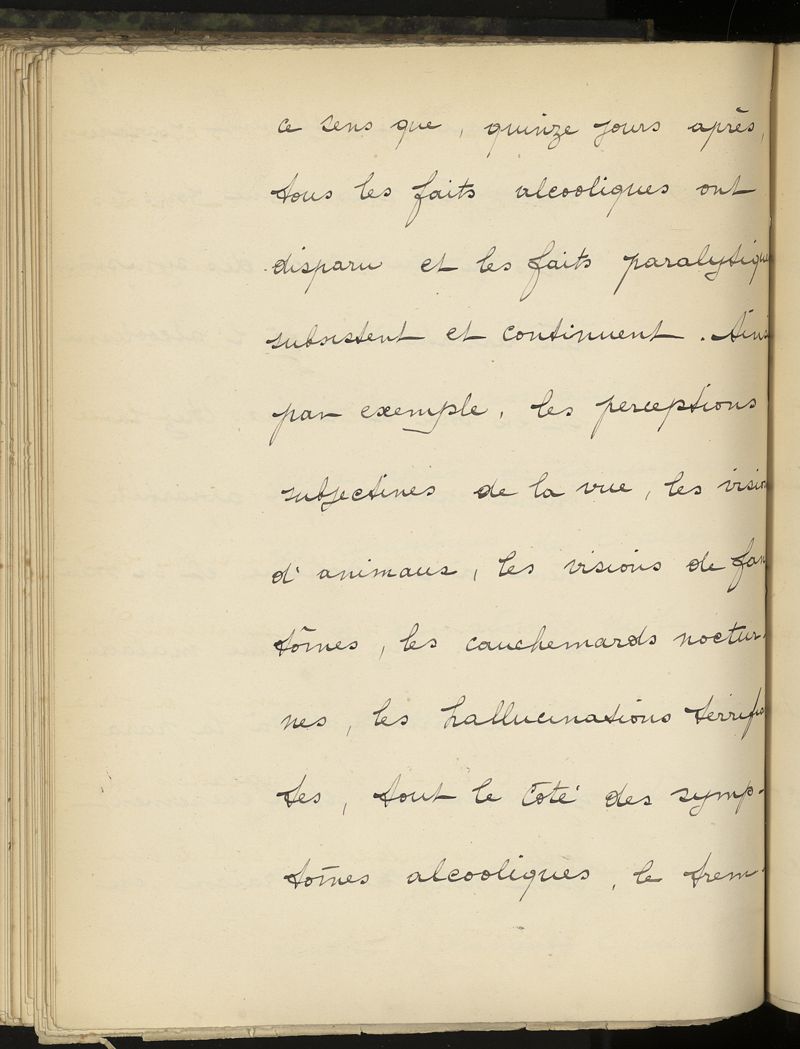 ce sens que, quinze jours après,
tous les faits alcooliques ont
disparu et les faits paralytique
subsistent et continuent. Ainsi
par exemple, les perceptions
subjectives de la vue, les vision
d'animaux, les visions de fan
tômes, les cauchemards noctur-
nes, les hallucinations terrifian
tes, tout le côté des symp-
tômes alcooliques, le trem-